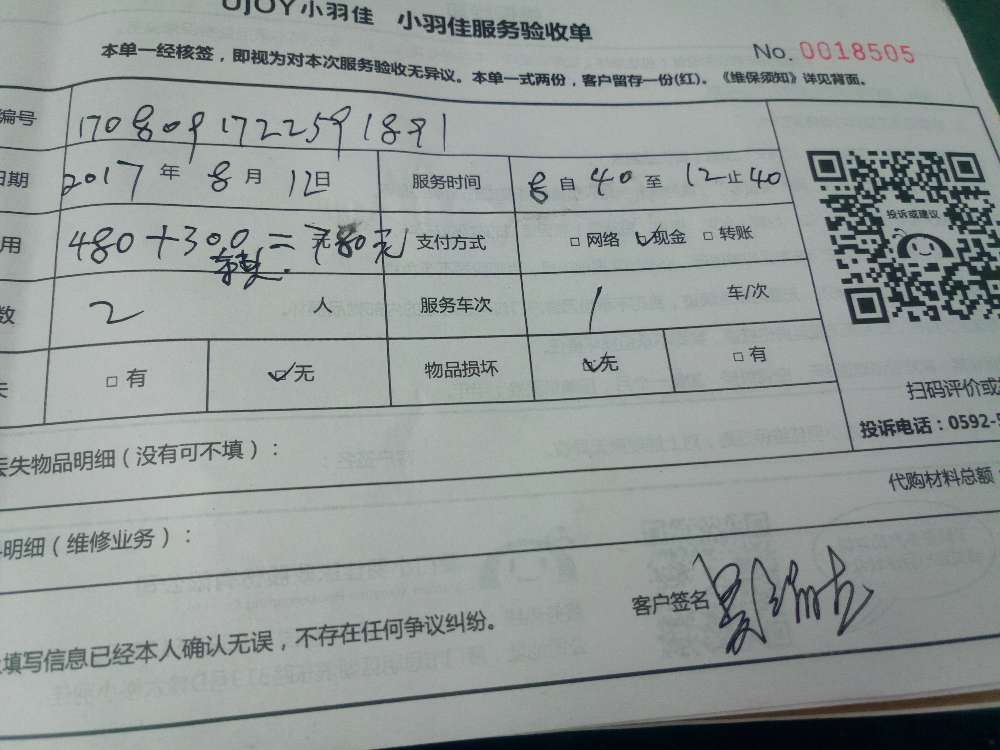 UJOY小羽佳 小羽佳服务验收单
No.0018505
本单一经核签，即视为对本次服务验收无异议。本单一式两份，客户留存一份(红)。《维保须知》详见背面。
编号 1708091722591891
日期 2017年8月12日 服务时间 8自40至12止40
用 480+300=780元 支付方式 □网络 ☑现金 □转账
数 2人 服务车次 1车/次
失 □有 ☑无 物品损坏 ☑无 □有
投诉或建议
扫码评价或
投诉电话：0592-5
丢失物品明细（没有可不填）：
代购材料总额：
明细（维修业务）：
客户签名
填写信息已经本人确认无误，不存在任何争议纠纷。